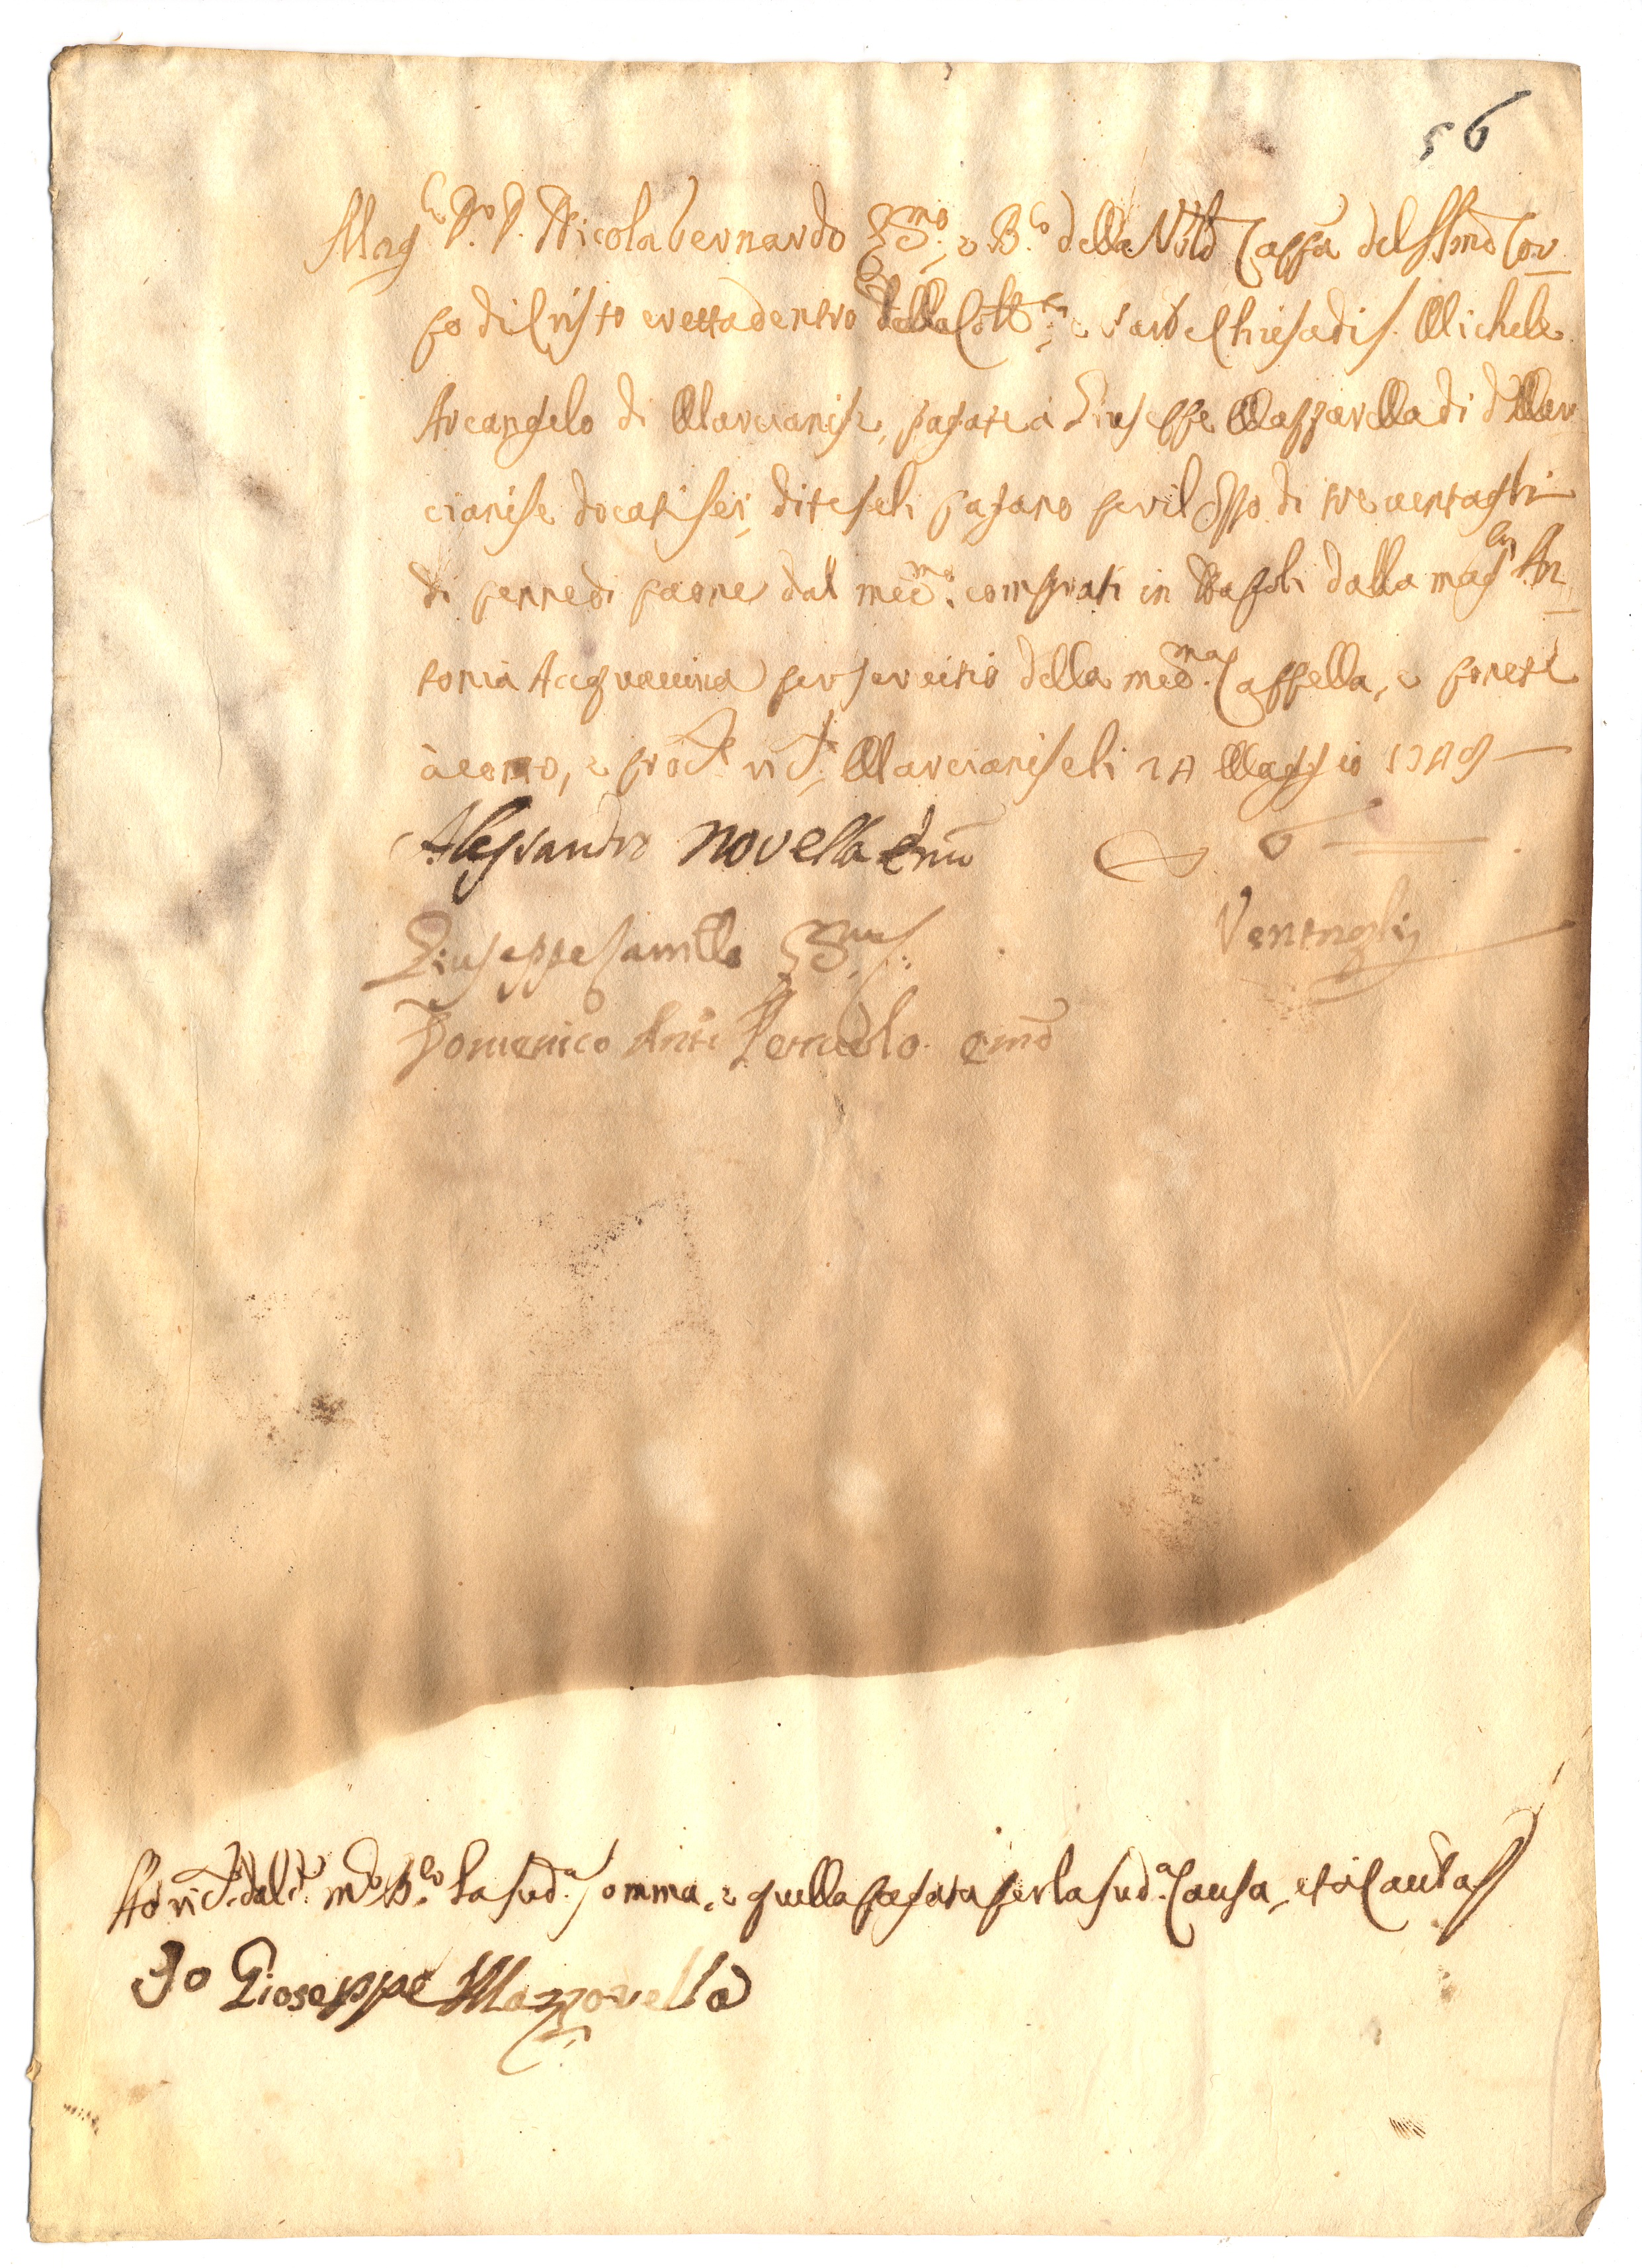 56
Mag.co D.r D. Nicola Bernardo Ecc.mo, e B.o della Ven.le Capp.a del SS.mo Cor
po di Cristo eretta dentro della Coll.ta, e Par.le Chiesa di S. Michele
Arcangelo di Marcianise, pagate à Giuseppe Mazzarella di d.o Mar
cianise docati sei, dite seli pagano per il prezzo di tre ventagli
di penne di paone dal med.mo comprati in Napoli dalla mag.ca An
tonia Acquaviva per servitio della med.ma Cappella, e ponete
à conto, e prod.e ric.ta Marcianise li 24 Maggio 1749
Alessandro Novella
6
Giuseppe Camillo
Ventaglij
Domenico Ant.o
Hò ric.to dal d.o m.co B.lo la sud.a somma, e quella pagata per la sud.a Causa, et à Cautela
Io Gioseppe Mazzarella